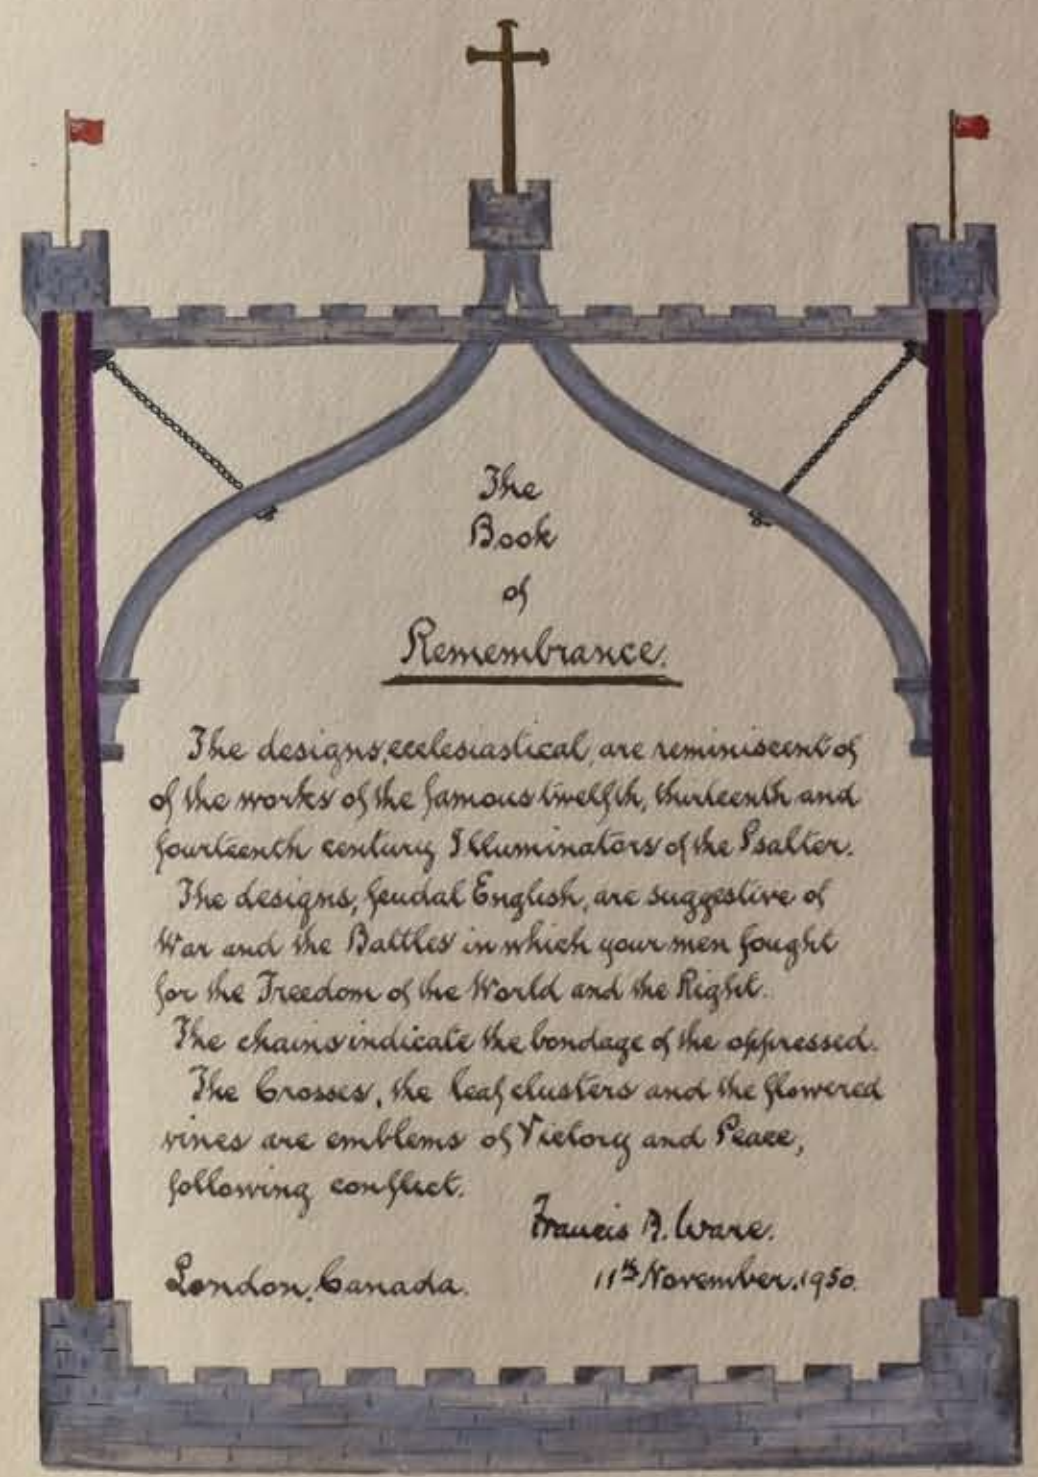 The
Book
of
Remembrance.
The designs, ecclesiastical, are reminiscent of
of the works of the famous twelfth, thirteenth and
fourteenth century Illuminators of the Psalter.
The designs, feudal English, are suggestive of
War and the Battles in which your men fought
for the Freedom of the World and the Right.
The chains indicate the bondage of the oppressed.
The Crosses, the leaf clusters and the flowered
vines are emblems of Victory and Peace,
following conflict.
Francis A. Ware.
London, Canada. 11th November, 1950.